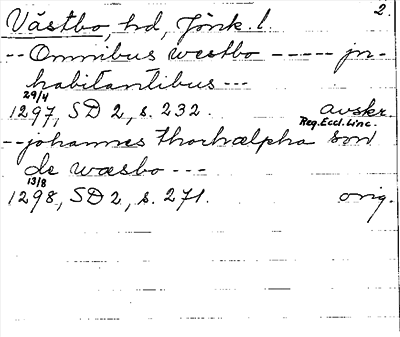 2.
Västbo, hd, Jönk. l
-- Omnibus westbo ----- jn-
habitantibus ---
29/4
1297, SD 2, s. 232. avskr.
Reg. Eccl. Linc.
-- johannes thorhælpha son
de wæsbo ---
13/8
1298, SD 2, s. 271. orig.